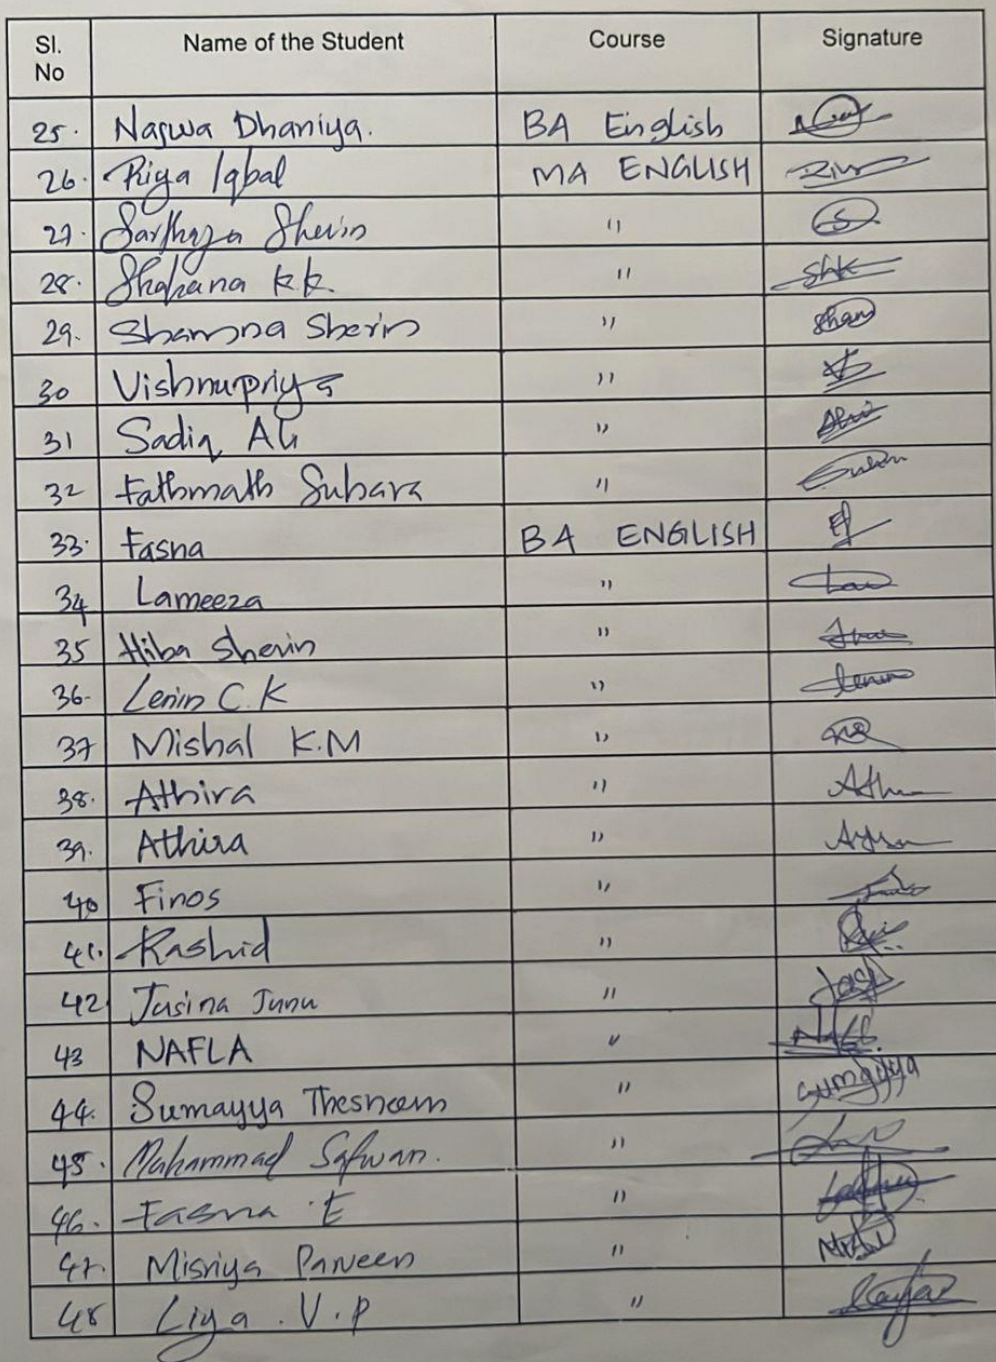 Sl. No Name of the Student Course Signature
25. Najwa Dhaniya. BA English
26. Riya Iqbal MA ENGLISH
27. Sherin "
28. Shahana k.k. " Shk
29. Shamna Sherin " Sham
30 Vishnupriya "
31 Sadiq Ali "
32 Fathmath Subara "
33. Fasna BA ENGLISH
34 Lameeza "
35 Hiba Sherin "
36. Lenin C.K " Lenin
37 Mishal K.M "
38. Athira " Ath
39. Athira "
40 Finos "
41. Rashid "
42 Jasina Junu " Jas
43 NAFLA "
44. Sumayya Thesneem " Sumayya
45. Muhammad Safwan. "
46. Fasna E "
47. Misriya Parveen "
48 Liya . V.P "